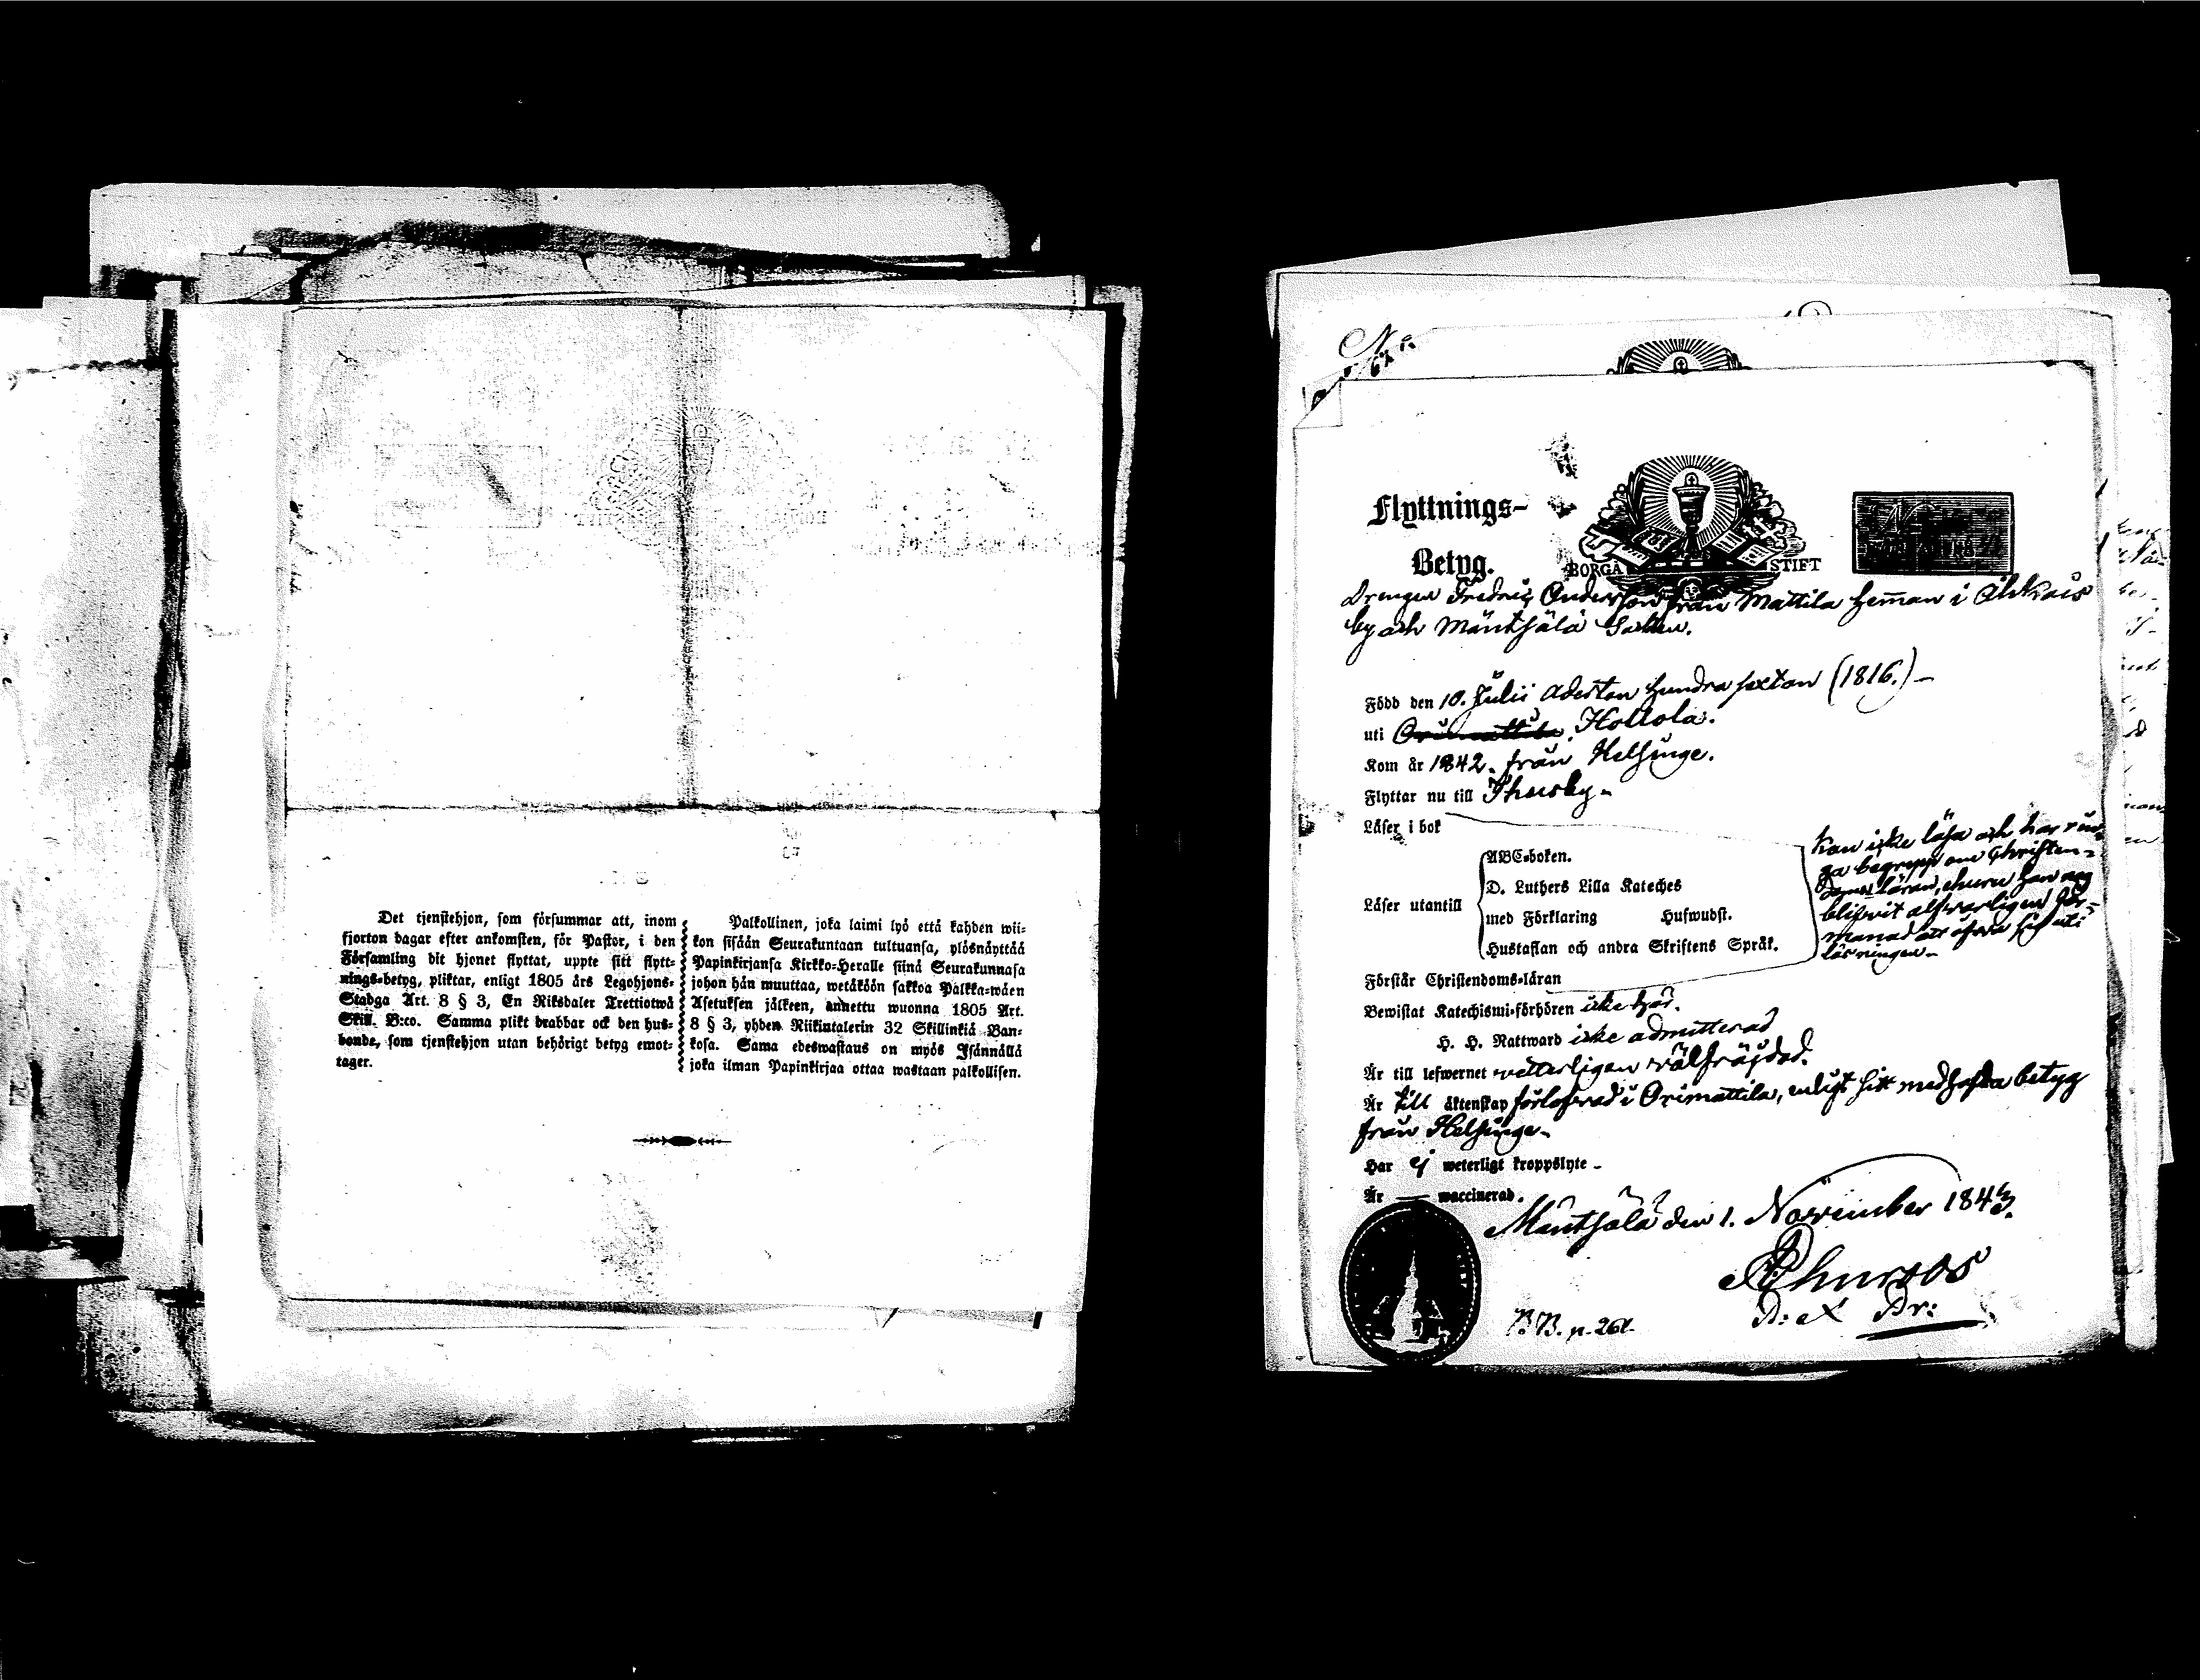 Det tjenstehjon, som försummar att, inom
fjorton dagar efter ankomsten, för Pastor, i den
Församling dit hjonet flyttat, uppte sitt flytt-
nings-betyg, pliktar, enligt 1805 års Legohjons-
Stadga Art. 8 § 3, En Riksdaler Trettiotwå
Skill. B:co. Samma plikt drabbar ock den hus-
bonde, som tjenstehjon utan behörigt betyg emot-
tager.
Palkollinen, joka laimi lyö että kahden wii-
kon sisään Seurakuntaan tultuansa, ylösnäyttää
Papinkirjansa Kirkko-Heralle siinä Seurakunnasa
johon hän muuttaa, wetäköön sakkoa Palkka-wäen
Asetuksen jälkeen, annettu wuonna 1805 Art.
8 § 3, yhden Riikintalerin 32 Skillinkiä Ban-
kosa. Sama edeswastaus on myös Isännällä
joka ilman Papinkirjaa ottaa wastaan palkollisen.
N
62
Flyttnings-
Betyg.
BORGÅ STIFT
Drengen Fredric Andersson från Mattila heman i Ohkois
by och Mäntsälä Socken.
Född den 10. Julii Aderton hundra sexton (1816.) –
uti Orimattila. Hollola.
Kom år 1842. från Helsinge.
Flyttar nu till Thusby –
Läser i bok
Läser utantill
ABC-boken.
D. Luthers Lilla Kateches
med Förklaring Hufwudst.
Hustaflan och andra Skriftens Språk.
Kan icke läsa och har rin-
ga begrepp om Christen-
doms läran, ehuru han
blifwit alfwarligen för-
manad att öfwa sig uti
läsningen –
Förstår Christendoms-läran
Bewistat Katechismi-förhören icke här.
H. H. Nattward icke admitterad
Är till lefwernet wetterligen wälfräjdad.
Är till äktenskap förlofwad i Orimattila, enligt sitt medhafda betyg
från Helsinge –
Har ej weterligt kroppslyte –
Är — waccinerad.
Mäntsälä den 1. November 1843.
P. ex Dr:
B.B. p. 261.